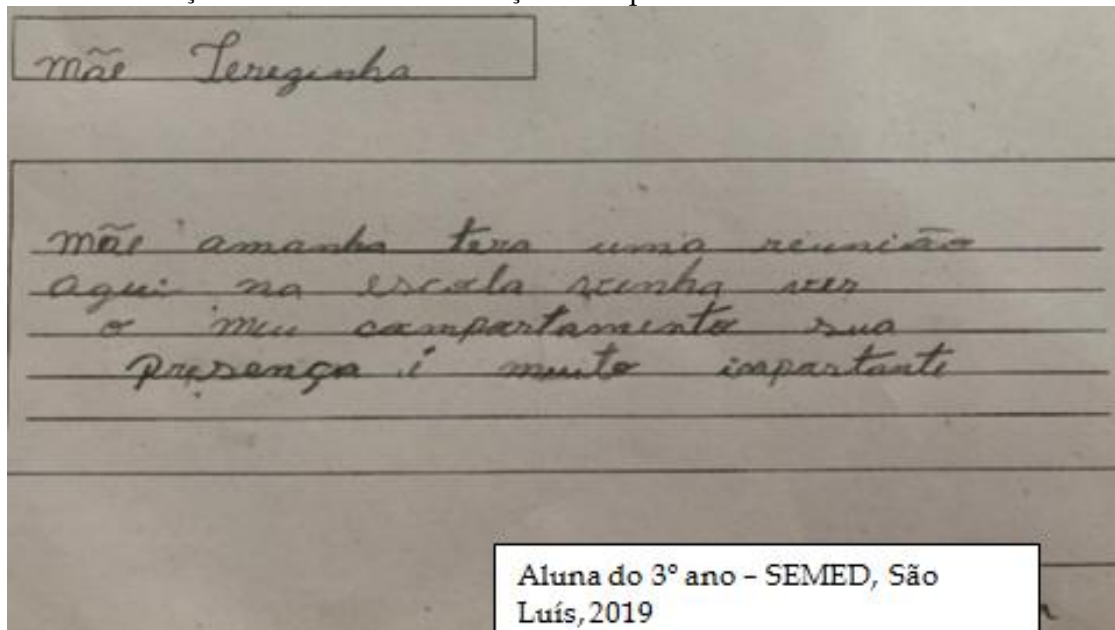 mãe Terezinha
mãe amanha tera uma reunião
aqui na escola venha ver
o meu compartamento sua
presença é muito importante
Aluna do 3° ano – SEMED, São
Luís, 2019